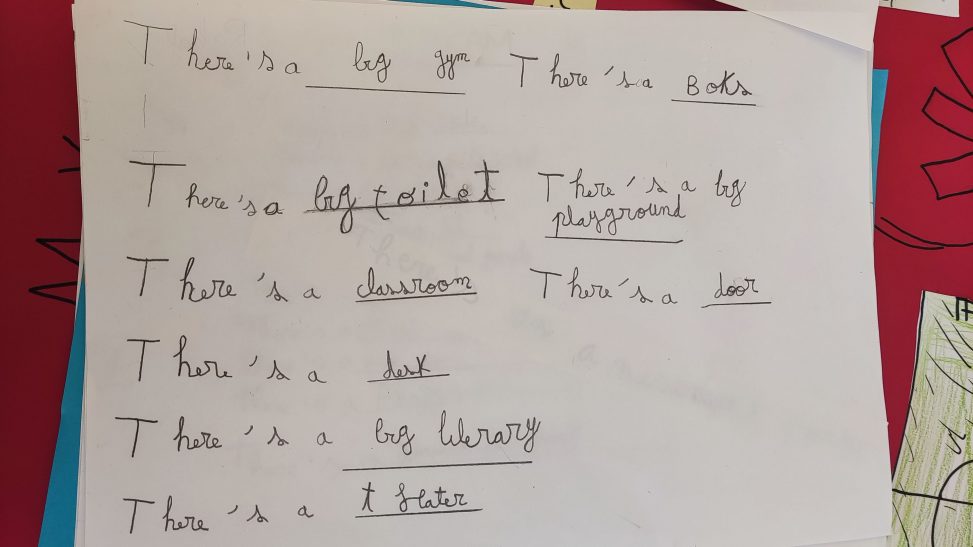 There's a big gym There's a Boks
There's a big toilet There's a big
playground
There's a classroom There's a door
There's a desk
There's a big liberary
There's a t